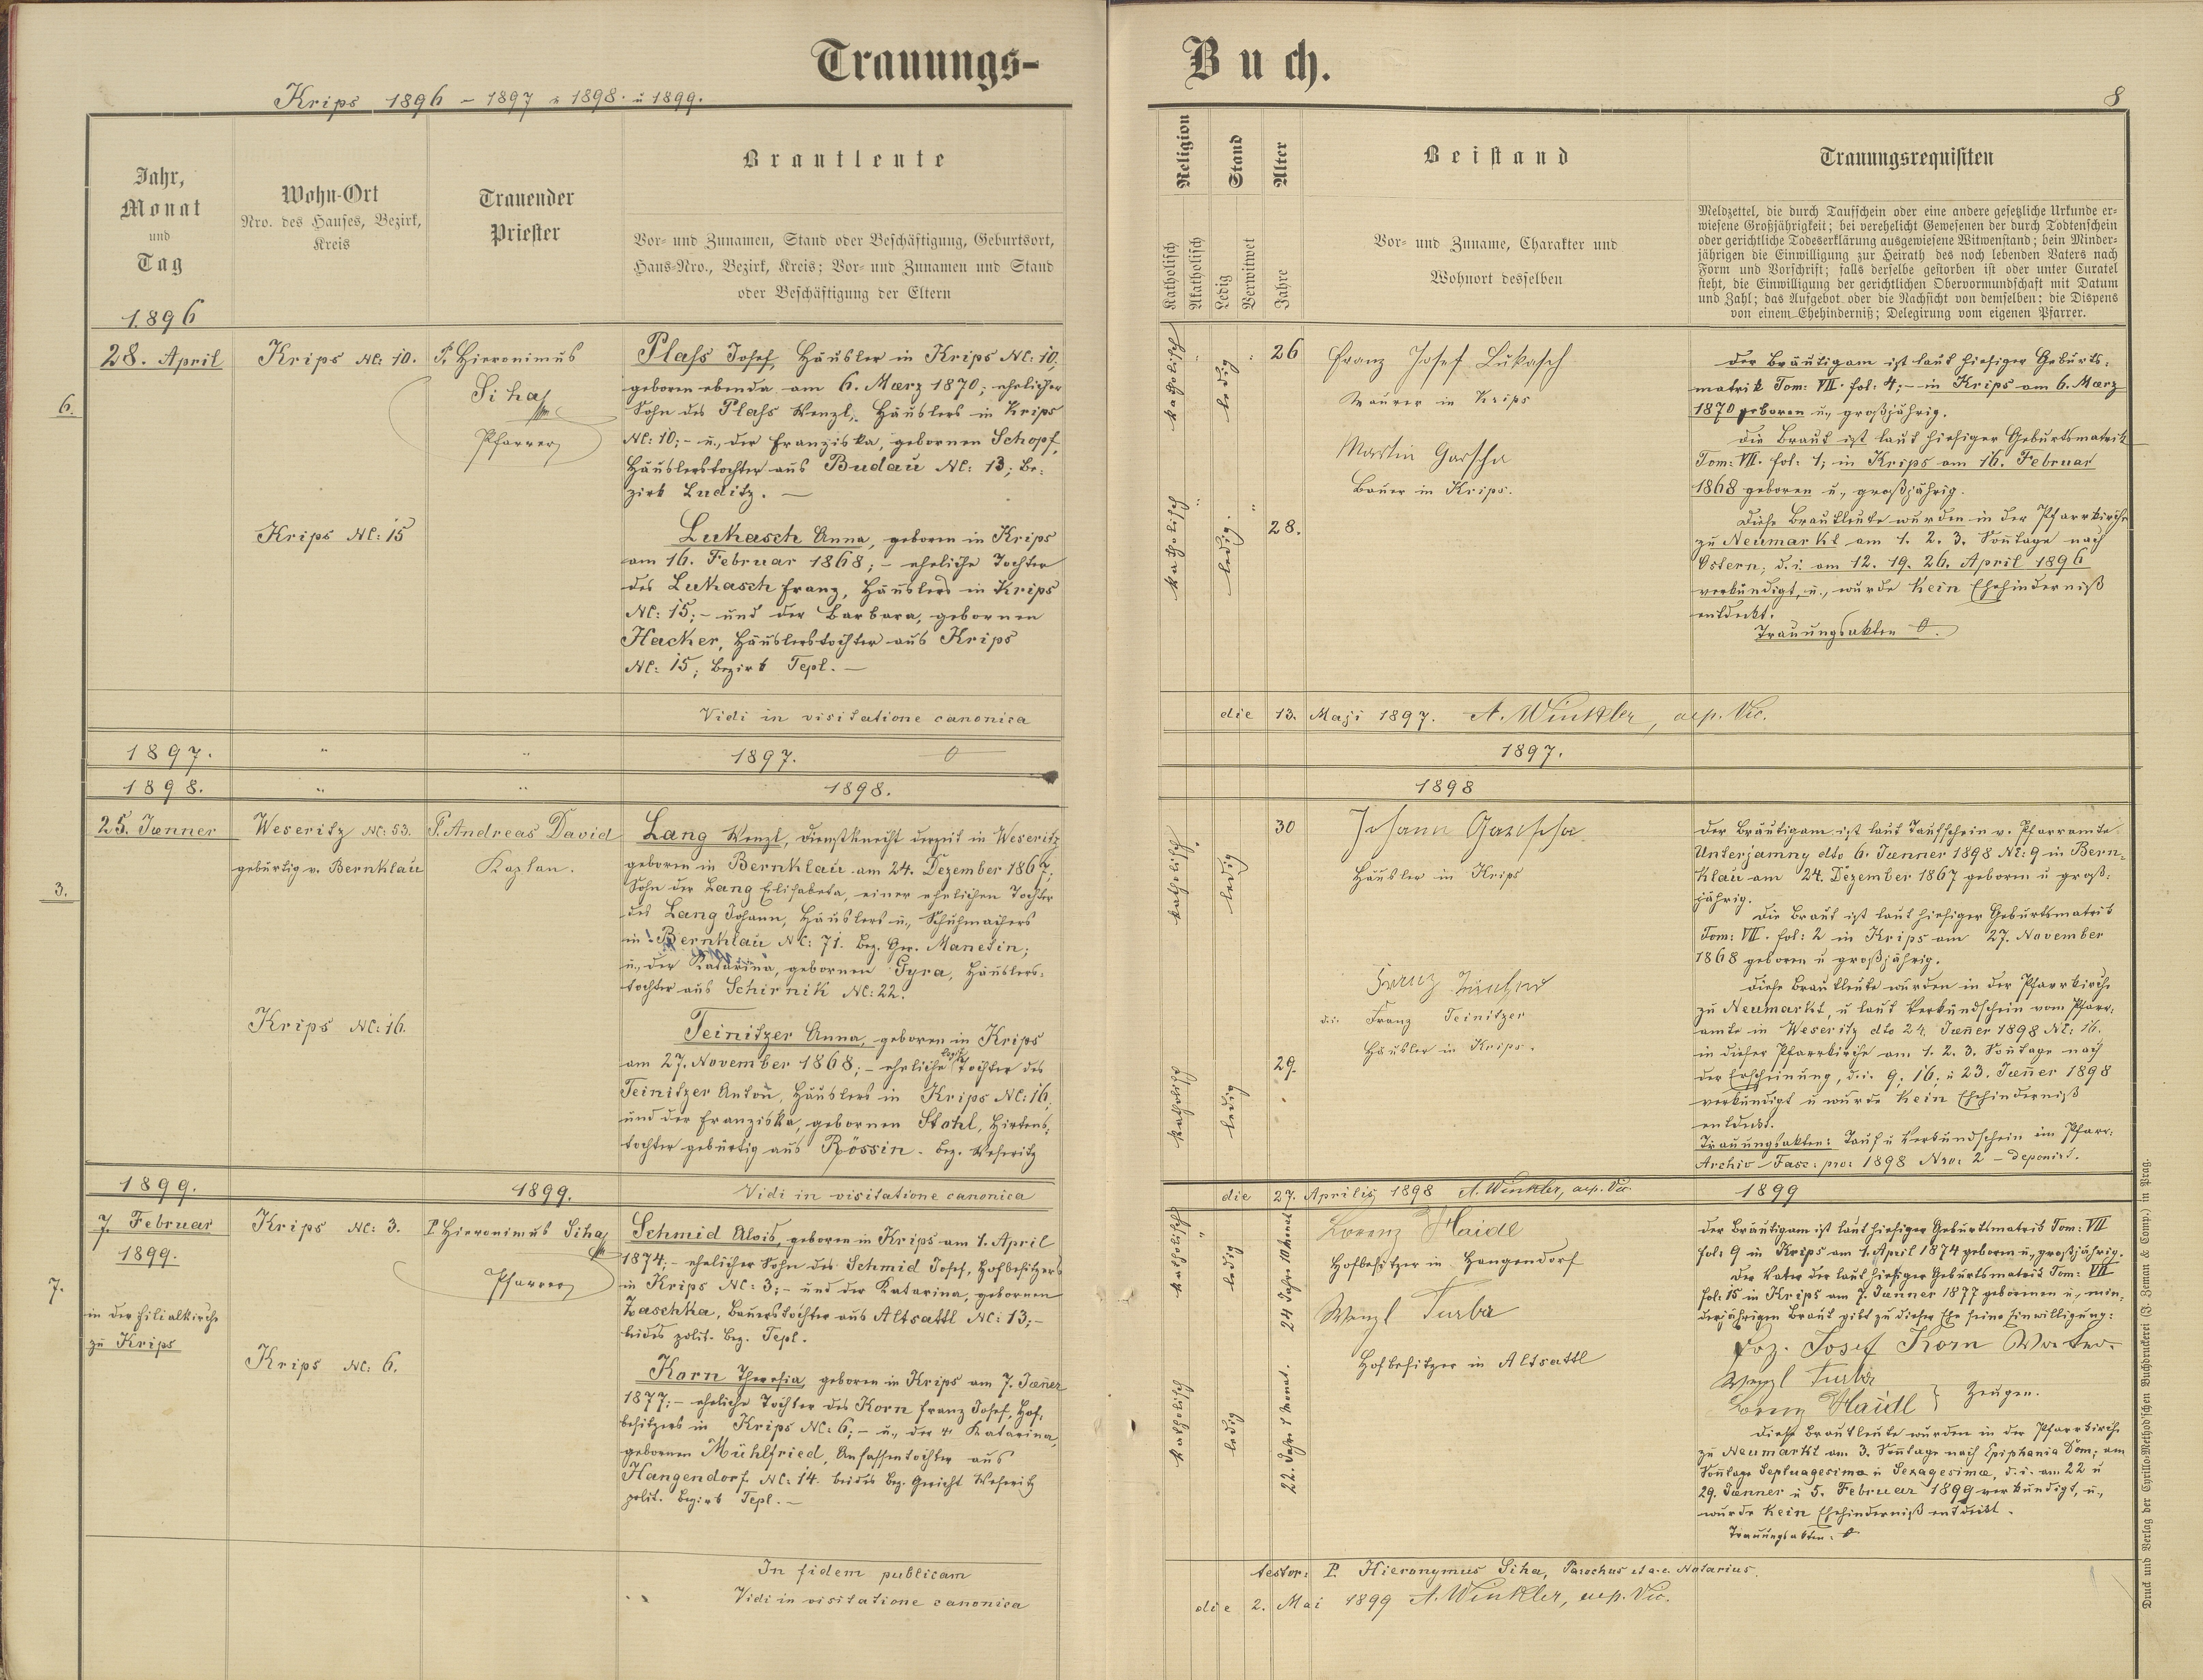 Trauungs-
Krips 1896 - 1897 u 1898. u 1899.
Jahr,
Monat
und
Tag
1896
Wohn-Ort
Nro. des Hauses, Bezirk,
Kreis
Trauender
Priester
Brautleute
Vor- und Zunamen, Stand oder Beschäftigung, Geburtsort,
Haus-Nro., Bezirk, Kreis; Vor- und Zunamen und Stand
oder Beschäftigung der Eltern
28. April
6.
Krips Nc: 10.
Krips Nc: 15
P. Hieronimus
Siha
Pfarrer
Plaſs Josef, Häusler in Krips Nc: 10,
geboren ebenda am 6. Maerz 1870; ehelicher
Sohn des Plaſs Wenzl, Häuslers in Krips
Nc: 10; - u., der Franziska, gebornen Schopf,
Häuslerstochter aus Budau Nc: 13; Be:
zirk Luditz. —
Lukasch Anna, geboren in Krips
am 16. Februar 1868; - eheliche Tochter
des Lukasch Franz, Häuslers in Krips
Nc: 15; - und der Barbara, gebornen
Hacker, Häuslerstochter aus Krips
Nc: 15; Bezirk Tepl. —
Vidi in visitatione canonica
1897. " " 1897. 0
1898. " " 1898.
25. Jænner
3.
Weseritz Nc: 53.
gebürtig v. Bernklau
Krips Nc: 16.
P. Andreas David
Kaplan.
Lang Wenzl, Dienstknecht derzeit in Weseritz
geboren in Bernklau am 24. Dezember 1867;
Sohn der Lang Elisabeta, einer ehelichen Tochter
des Lang Johann, Häuslers u., Schuhmachers
in Bernklau Nc: 71. Bez. Ger. Manetin;
u., der Katarina, gebornen Gyra, Häuslers:
tochter aus Schirnik Nc: 22.
Teinitzer Anna, geboren in Krips
am 27. November 1868; - eheliche Tochter des
Teinitzer Anton, Häuslers in Krips Nc: 16,
und der Franziska, gebornen Stohl, Hirtens:
tochter gebürtig aus Rössin. Bez. Weseritz
1899. 1899. Vidi in visitatione canonica
7. Februar
1899.
7.
in der Filialkirche
zu Krips
Krips Nc: 3.
Krips Nc: 6.
P. Hieronimus Siha
Pfarrer
Schmid Alois, geboren in Krips am 1. April
1874; - ehelicher Sohn des Schmid Josef, Hofbesitzers
in Krips Nc: 3; - und der Katarina, gebornen
Zaschka, Bauerstochter aus Altsattl Nc: 13; -
beides polit. Bez. Tepl.
Korn Theresia, geboren in Krips am 7. Jæner
1877; - eheliche Tochter des Korn Franz Josef, Hof:
besitzers in Krips Nc: 6; - u., der Katarina,
gebornen Mühlfried, Ansassentochter aus
Hangendorf Nc: 14. beides Bez. Gericht Weseritz
polit. Bezirk Tepl. —
In fidem publicam
Vidi in visitatione canonica
Buch.
8
Religion
Katholisch
Akatholisch
Stand
Ledig
Verwitwet
Alter
Jahre
Beistand
Vor- und Zuname, Charakter und
Wohnort desselben
Trauungsrequisiten
Meldzettel, die durch Taufschein oder eine andere gesetzliche Urkunde er-
wiesene Großjährigkeit; bei verehelicht Gewesenen der durch Todtenschein
oder gerichtliche Todeserklärung ausgewiesene Witwenstand; bein Minder-
jährigen die Einwilligung zur Heirath des noch lebenden Vaters nach
Form und Vorschrift; falls derselbe gestorben ist oder unter Curatel
steht, die Einwilligung der gerichtlichen Obervormundschaft mit Datum
und Zahl; das Aufgebot oder die Nachsicht von demselben; die Dispens
von einem Ehehinderniß; Delegirung vom eigenen Pfarrer.
katholisch
ledig
26
katholisch
ledig.
28.
Franz Josef Lukasch
Maurer in Krips
Martin Garscha
Bauer in Krips.
Der Bräutigam ist laut hiesiger Geburts:
matrik Tom: VII. fol: 4; - in Krips am 6. Maerz
1870 geboren u., großjährig.
Die Braut ist laut hiesiger Geburtsmatrik
Tom: VII. fol: 1; in Krips am 16. Februar
1868 geboren u., großjährig.
Diese Brautleute wurden in der Pfarrkirche
zu Neumarkt am 1. 2. 3. Sontage nach
Ostern, d. i. am 12. 19. 26. April 1896
verkündigt, u., wurde kein Ehehinderniß
entdeckt.
Trauungsakten 0.
die 13. Maji 1897. A. Winkler, aep. Vic.
1897.
1898
katholisch
ledig
30
katholisch
ledig
29.
Johann Garscha
Häusler in Krips
d. i. Franz Teinitzer
Häusler in Krips.
Der Bräutigam ist laut Taufschein v. Pfarramte
Unterjamny dto 6. Jænner 1898 Nc: 9 in Bern:
klau am 24. Dezember 1867 geboren u groß:
jährig.
Die Braut ist laut hiesiger Geburtsmatrik
Tom: VII. fol: 2 in Krips am 27. November
1868 geboren u großjährig.
Diese Brautleute wurden in der Pfarrkirche
zu Neumarkt, u laut Verkündschein vom Pfarr:
amte in Weseritz dto 24. Jæner 1898 Nc: 16.
in dieser Pfarrkirche am 1. 2. 3. Sontage nach
der Erscheinung, d. i. 9. 16. u 23. Jæner 1898
verkündigt u wurde kein Ehehinderniß
entdeckt.
Trauungsakten: Tauf u Verkündschein im Pfarr:
Archiv Fasc: pro: 1898 Nro: 2 - deponirt.
die 27. Aprilis 1898 A. Winkler, aep. Vic. 1899
katholisch
ledig
24 Jahre 10 Monat
katholisch
ledig
22. Jahre 1 Monat.
Lorenz Haidl
Hofbesitzer in Hangendorf
Wenzl Turba
Hofbesitzer in Altsattl
Der Bräutigam ist laut hiesiger Geburtsmatrik Tom: VII
fol: 9 in Krips am 1. April 1874 geboren u., großjährig.
Der Vater der laut hiesiger Geburtsmatrik Tom: VII
fol: 15 in Krips am 7. Jænner 1877 gebornen u., min:
derjährigen Braut gibt zu dieser Ehe seine Einwilligung:
Frz. Josef Korn Vater.
Wenzl Turba
Lorenz Haidl } Zeugen.
Diese Brautleute wurden in der Pfarrkirche
zu Neumarkt am 3. Sontage nach Epiphania Dom; am
Sontage Septuagesima u Sexagesima, d. i. am 22 u
29. Jænner u 5. Februar 1899 verkündigt, u.,
wurde kein Ehehinderniß entdeckt.
Trauungsakten: 0
testor: P. Hieronymus Siha, Parochus et a. c. Notarius.
die 2. Mai 1899 A. Winkler, aep. Vic.
Druck und Verlag der Cyrillo-Method'schen Buchdruckerei (J. Zeman & Comp.) in Prag.